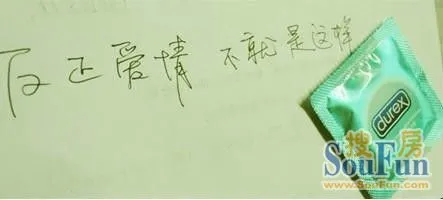 反正爱情 不就是这样
durex
搜房
SouFun
www.SouFun.com